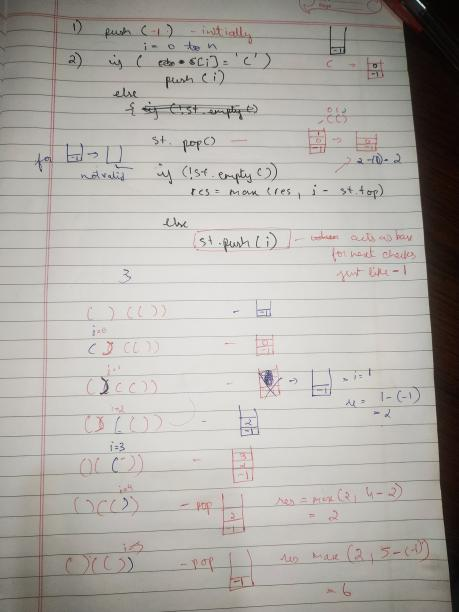 1) push (-1) - initially
i = 0 to n
2) if ( s[i] = '(' )
push (i)
( →
0
-1
else
{ if (!st.empty()
st. pop() —
for -1 → not valid
if (!st.empty())
res = max (res, i - st.top)
else
st.push(i) - acts as base
for next checks
just like -1
3
( ) ( ( ) ) - -1
i=0
( ) ( ( ) ) - 0 -1
i=1
( ) ( ( ) ) - → -1 = i=1
1-(-1)
= 2
i=2
( ) ( ( ) ) - 2 -1
i=3
( ) ( ( ) ) - 3 2 -1
i=4
( ) ( ( ) ) - pop 2 -1 res = max (2, 4-2)
= 2
i=5
( ) ( ( ) ) - pop -1 res max (2, 5-(-1))
= 6